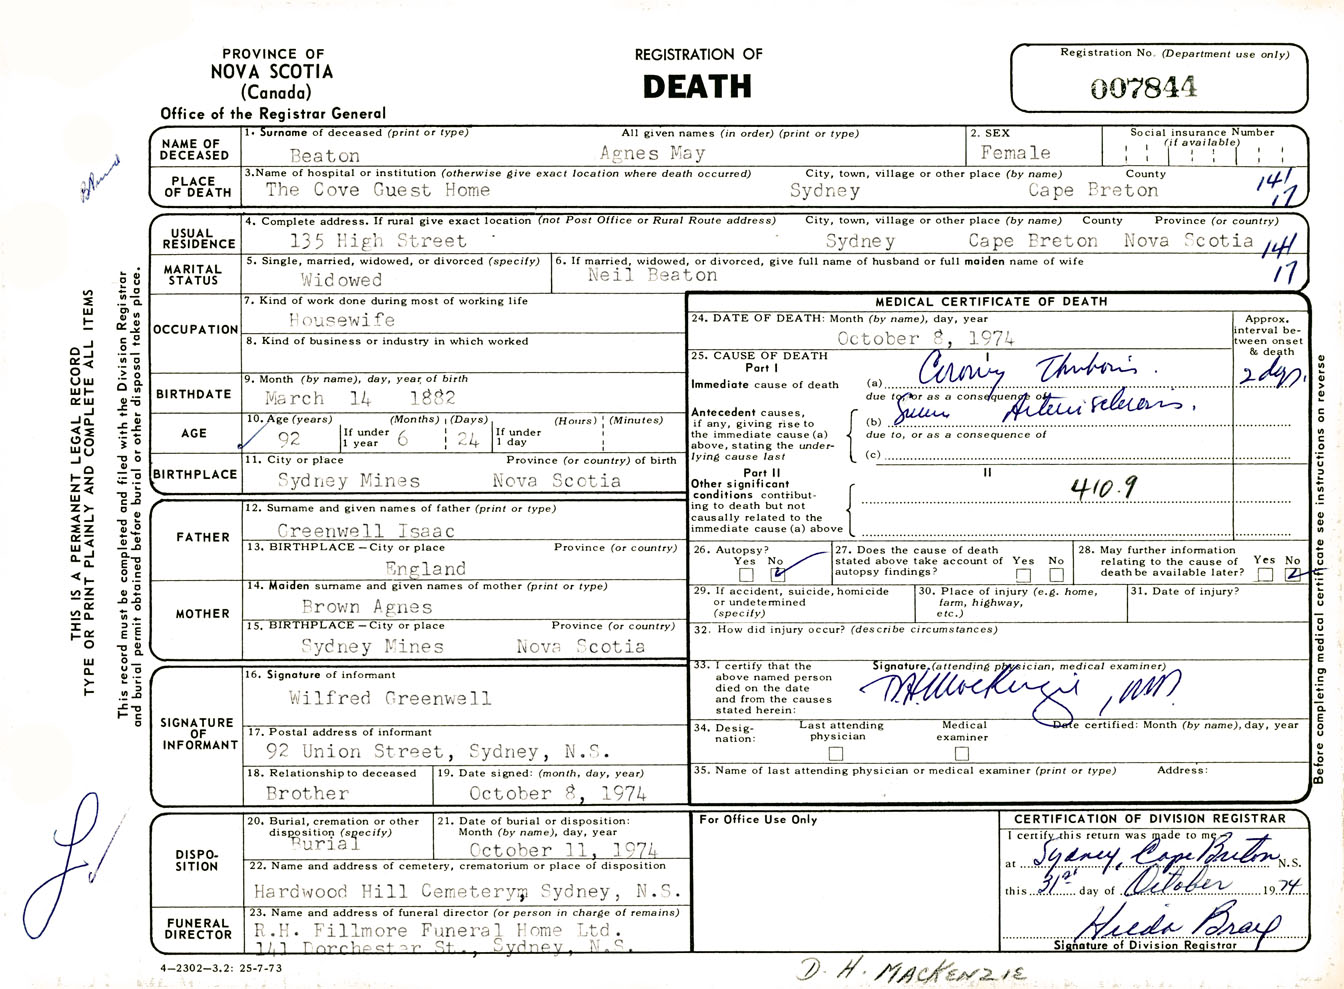 PROVINCE OF
NOVA SCOTIA
(Canada)
Office of the Registrar General
REGISTRATION OF
DEATH
Registration No. (Department use only)
007844
NAME OF DECEASED
1. Surname of deceased (print or type) All given names (in order) (print or type) 2. SEX Social insurance Number (if available)
Beaton Agnes May Female
PLACE OF DEATH
3. Name of hospital or institution (otherwise give exact location where death occurred) City, town, village or other place (by name) County
The Cove Guest Home Sydney Cape Breton 141 17
USUAL RESIDENCE
4. Complete address. If rural give exact location (not Post Office or Rural Route address) City, town, village or other place (by name) County Province (or country)
135 High Street Sydney Cape Breton Nova Scotia 141 17
MARITAL STATUS
5. Single, married, widowed, or divorced (specify) 6. If married, widowed, or divorced, give full name of husband or full maiden name of wife
Widowed Neil Beaton
OCCUPATION
7. Kind of work done during most of working life
Housewife
8. Kind of business or industry in which worked
BIRTHDATE
9. Month (by name), day, year of birth
March 14 1882
AGE
10. Age (years) (Months) (Days) (Hours) (Minutes)
92 If under 1 year 6 24 If under 1 day
BIRTHPLACE
11. City or place Province (or country) of birth
Sydney Mines Nova Scotia
FATHER
12. Surname and given names of father (print or type)
Greenwell Isaac
13. BIRTHPLACE - City or place Province (or country)
England
MOTHER
14. Maiden surname and given names of mother (print or type)
Brown Agnes
15. BIRTHPLACE - City or place Province (or country)
Sydney Mines Nova Scotia
SIGNATURE OF INFORMANT
16. Signature of informant
Wilfred Greenwell
17. Postal address of informant
92 Union Street, Sydney, N.S.
18. Relationship to deceased 19. Date signed: (month, day, year)
Brother October 8, 1974
DISPO-
SITION
20. Burial, cremation or other disposition (specify) 21. Date of burial or disposition: Month (by name), day, year
Burial October 11, 1974
22. Name and address of cemetery, crematorium or place of disposition
Hardwood Hill Cemetery, Sydney, N.S.
FUNERAL DIRECTOR
23. Name and address of funeral director (or person in charge of remains)
R.H. Fillmore Funeral Home Ltd.
141 Dorchester St., Sydney, N.S.
4-2302-3.2: 25-7-73
MEDICAL CERTIFICATE OF DEATH
24. DATE OF DEATH: Month (by name), day, year
October 8, 1974
Approx. interval be-
tween onset & death
25. CAUSE OF DEATH
Part I
Immediate cause of death (a) Coronary Thrombosis. 2 days.
due to, or as a consequence of
Antecedent causes, if any, giving rise to the immediate cause (a) above, stating the under-
lying cause last
(b) Arteriosclerosis.
due to, or as a consequence of
(c)
Part II
II
Other significant conditions contribut-
ing to death but not causally related to the immediate cause (a) above
410.9
26. Autopsy? Yes No
27. Does the cause of death stated above take account of autopsy findings? Yes No
28. May further information relating to the cause of death be available later? Yes No
29. If accident, suicide, homicide or undetermined (specify)
30. Place of injury (e.g. home, farm, highway, etc.)
31. Date of injury?
32. How did injury occur? (describe circumstances)
33. I certify that the above named person died on the date and from the causes stated herein:
Signature (attending physician, medical examiner)
D.H. MacKenzie, MD.
34. Desig-
nation: Last attending physician Medical examiner Date certified: Month (by name), day, year
35. Name of last attending physician or medical examiner (print or type) Address:
For Office Use Only
CERTIFICATION OF DIVISION REGISTRAR
I certify this return was made to me
at Sydney, Cape Breton N.S.
this 31st day of October 1974
Signature of Division Registrar
D. H. MACKENZIE
THIS IS A PERMANENT LEGAL RECORD
TYPE OR PRINT PLAINLY AND COMPLETE ALL ITEMS
This record must be completed and filed with the Division Registrar
and burial permit obtained before burial or other disposal takes place.
Before completing medical certificate see instructions on reverse